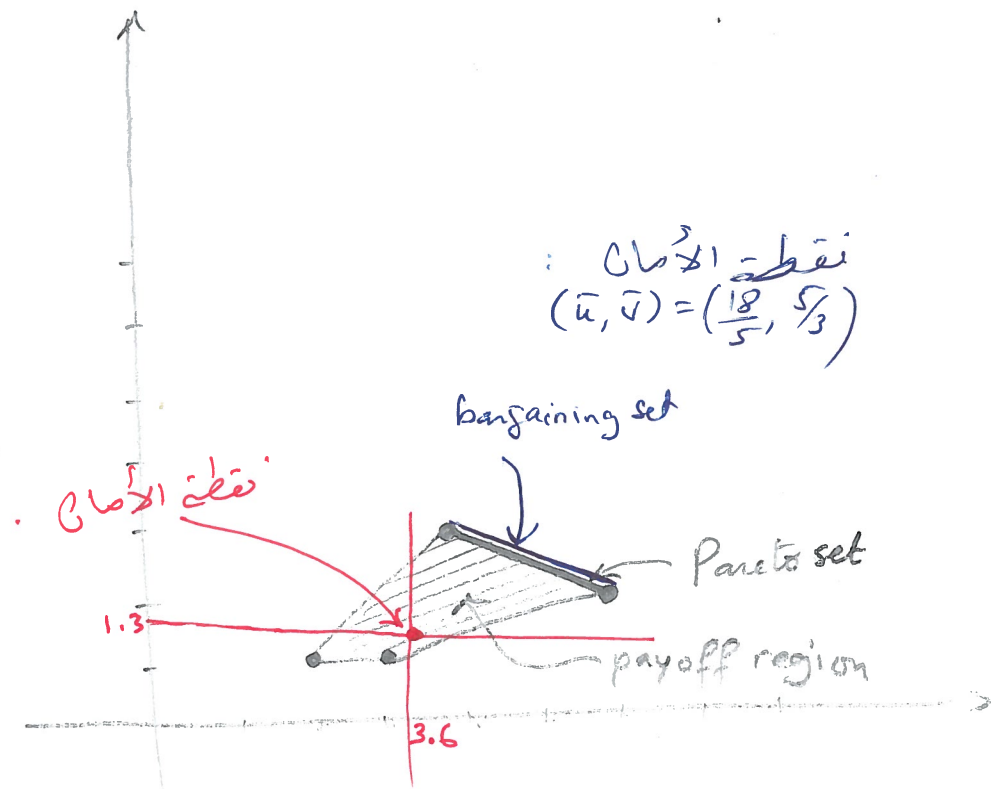 نقطة الأمان :
(ū, v̄) = (18/5, 5/3)
bargaining set
نقطة الأمان
Pareto set
1.3
payoff region
3.6